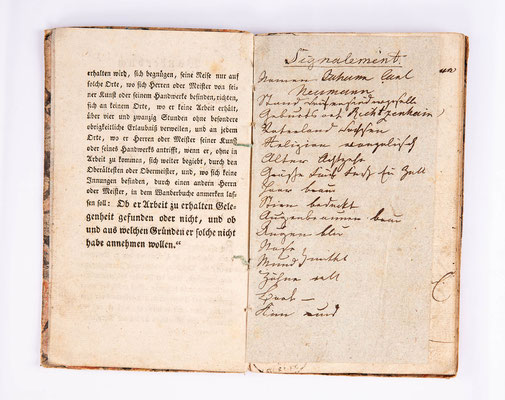 erhalten wird, sich begnügen, seine Reise nur auf
solche Orte, wo sich Herren oder Meister von sei-
ner Kunst oder seinem Handwerke befinden, richten,
sich an keinem Orte, wo er keine Arbeit erhält,
über vier und zwanzig Stunden ohne besondere
obrigkeitliche Erlaubniß verweilen, und an jedem
Orte, wo er Herren oder Meister seiner Kunst
oder seines Handwerks antrifft, wenn er, ohne in
Arbeit zu kommen, sich weiter begiebt, durch den
Oberältesten oder Obermeister, und, wo sich keine
Innungen befinden, durch einen andern Herrn
oder Meister, in dem Wanderbuche anmerken las-
sen soll: Ob er Arbeit zu erhalten Gele-
genheit gefunden oder nicht, und ob
und aus welchen Gründen er solche nicht
habe annehmen wollen.“
Signalement.
Namen Carl
Neumann
Stand
Geburtsort
Vaterland Sachsen
Religion evangelisch
Alter
Größe
Haar braun
Stirn bedeckt
Augenbraunen braun
Augen blau
Nase
Mund
Zähne
Bart —
Kinn rund